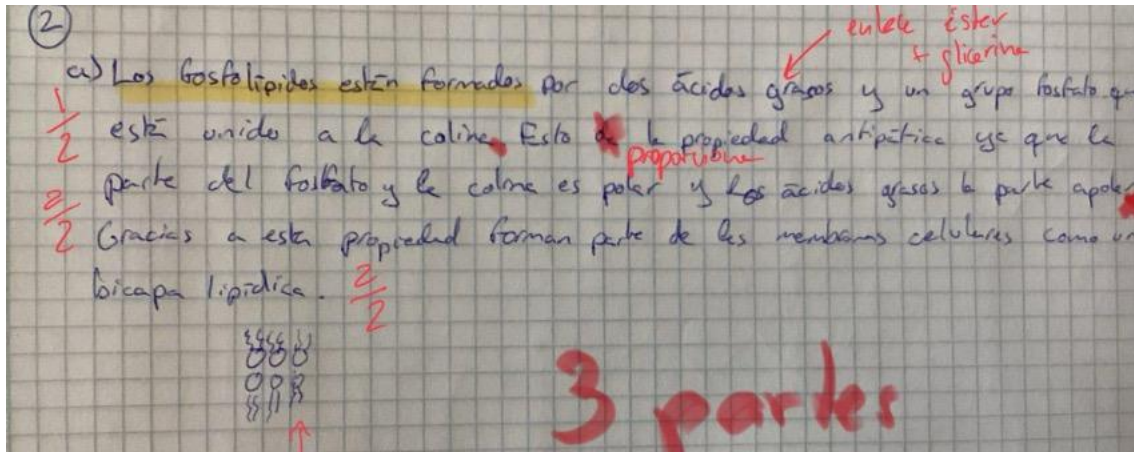 2
enlace éster
+ glicerina
a) Los fosfolípidos están formados por dos ácidos grasos y un grupo fosfato que
1/2
está unido a la colina. Esto la propiedad antipática ya que la
proporciona
parte del fosfato y la colina es polar y los ácidos grasos la parte apolar
2/2
Gracias a esta propiedad forman parte de las membranas celulares como un
bicapa lipídica. 2/2
3 partes